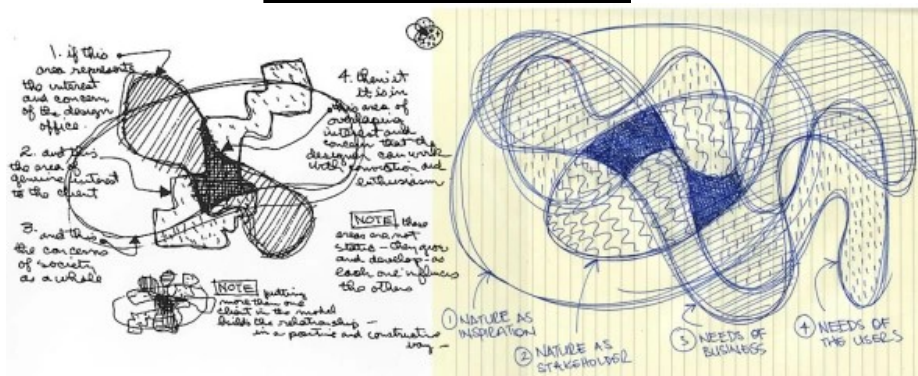 1. if this
area represents
the interest
and concern
of the design
office.
2. and this
the area of
genuine interest
to the client
3. and this
the concerns
of society
as a whole
4. then it
it is in
this area of
overlapping
interest and
concern that the
designer can work
with conviction and
enthusiasm
NOTE these
areas are not
static – they grow
and develop – as
each one influences
the others
NOTE putting
more than one
client in the model
builds the relationship –
in a positive and constructive
way –
1 NATURE AS
INSPIRATION
2 NATURE AS
STAKEHOLDER
3 NEEDS OF
BUSINESS
4 NEEDS OF
THE USERS